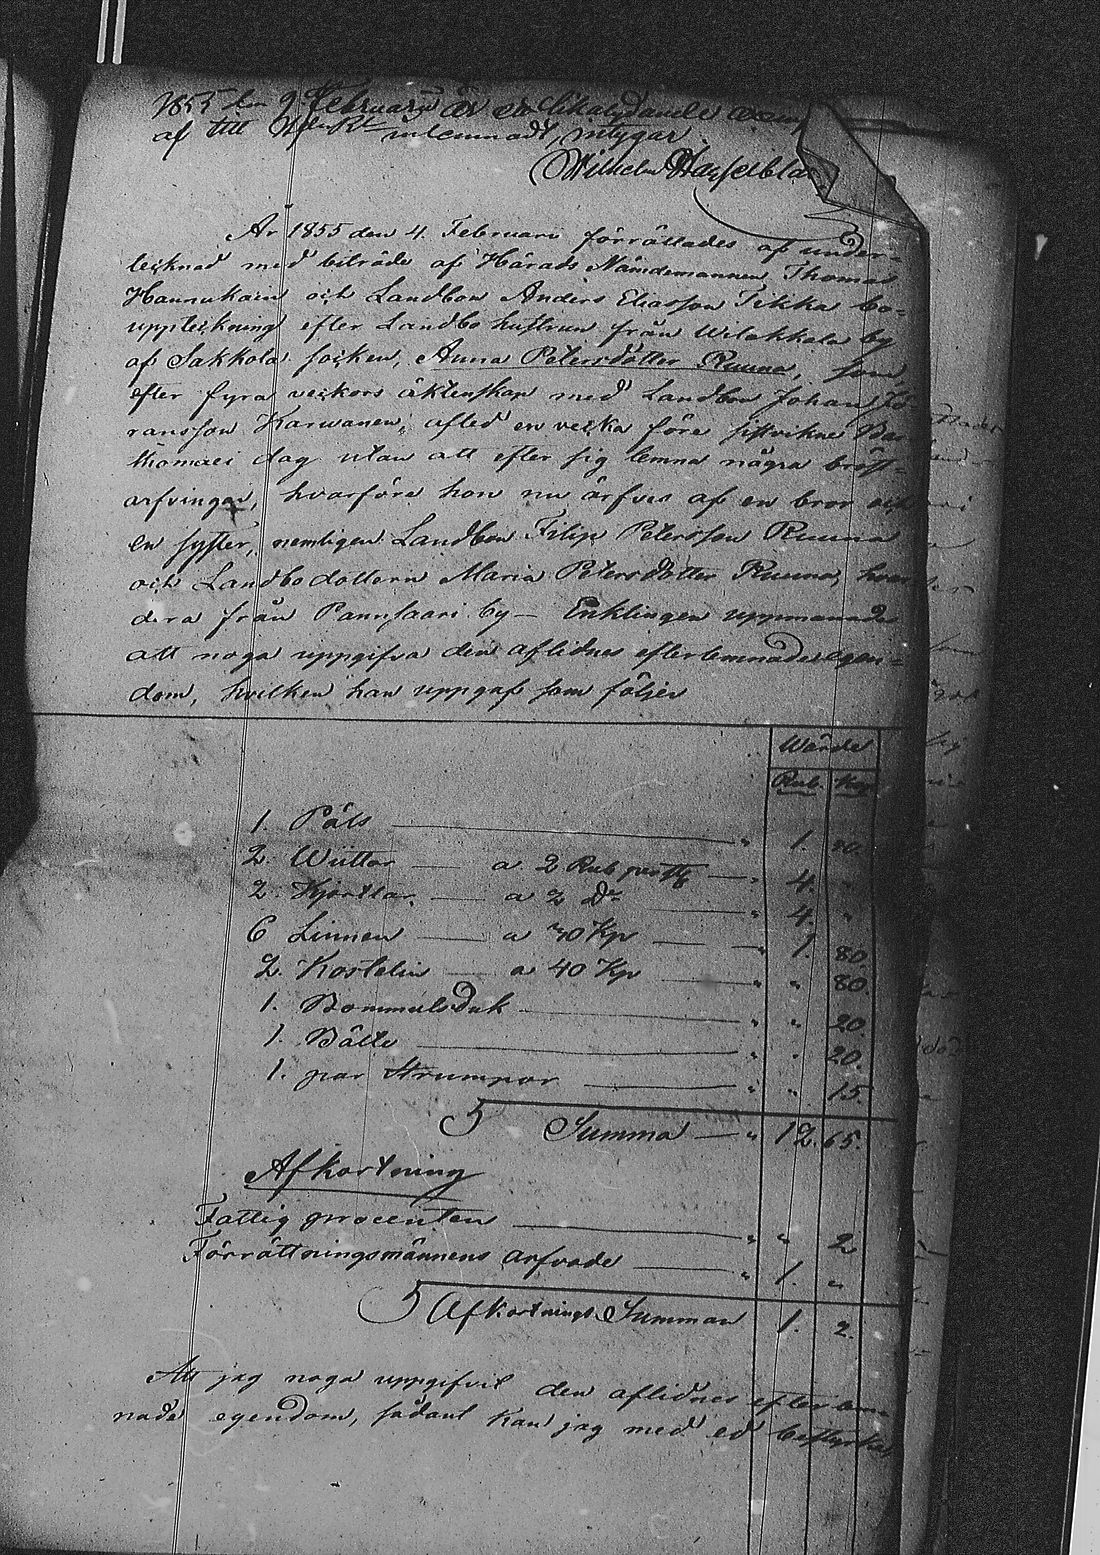 1855 den 9 Februarii är ett likalydande exemp
af till Hfde Rtn inlemnadt, intygar
Wilhelm Hasselblat
År 1855 den 4. Februari förrättades af under-
tecknad med biträde af Härads Nämdemannen Thomas
Hannukain och Landbon Anders Eliasson Tikka bo-
uppteckning efter Landbo hustrun från Wilakkala by
af Sakkola socken, Anna Petersdotter Ruuna, som,
efter fyra veckors äktenskap med Landbon Johan Jö-
ransson Karwanen, afled en vecka före sistvikne Bar
thomæi dag utan att efter sig lemna några bröst-
arfvingar, hvarföre hon nu ärfves af en bror och
en syster, nemligen Landbon Filip Petersson Ruuna
och Landbo dottern Maria Petersdotter Ruuna, hvar
dera från Pannsaari by — Enklingen uppmanades
att noga uppgifva den aflidnes efterlemnade egen-
dom, hvilken han uppgaf som följer
Wärde
Rub. Kop.
1. Päls " 1.
2. Wüttor a 2 Rub pr st " 4. "
2. Kjortlar. a 2 Do " 4. "
6 Linnen a 30 Kp " 1. 80.
2. Kostelin a 40 Kp " " 80.
1. Bommulsduk " " 20.
1. Bälte " " 20.
1. par Strumpor " " 15.
Summa " 12. 65.
Afkortning
Fattig procenten " " 2
Förrättningsmännens arfvode " 1. "
Afkortnings Summan 1. 2.
Att jag noga uppgifvit den aflidnes efterlem-
nade egendom, sådant kan jag med ed bestyrka,